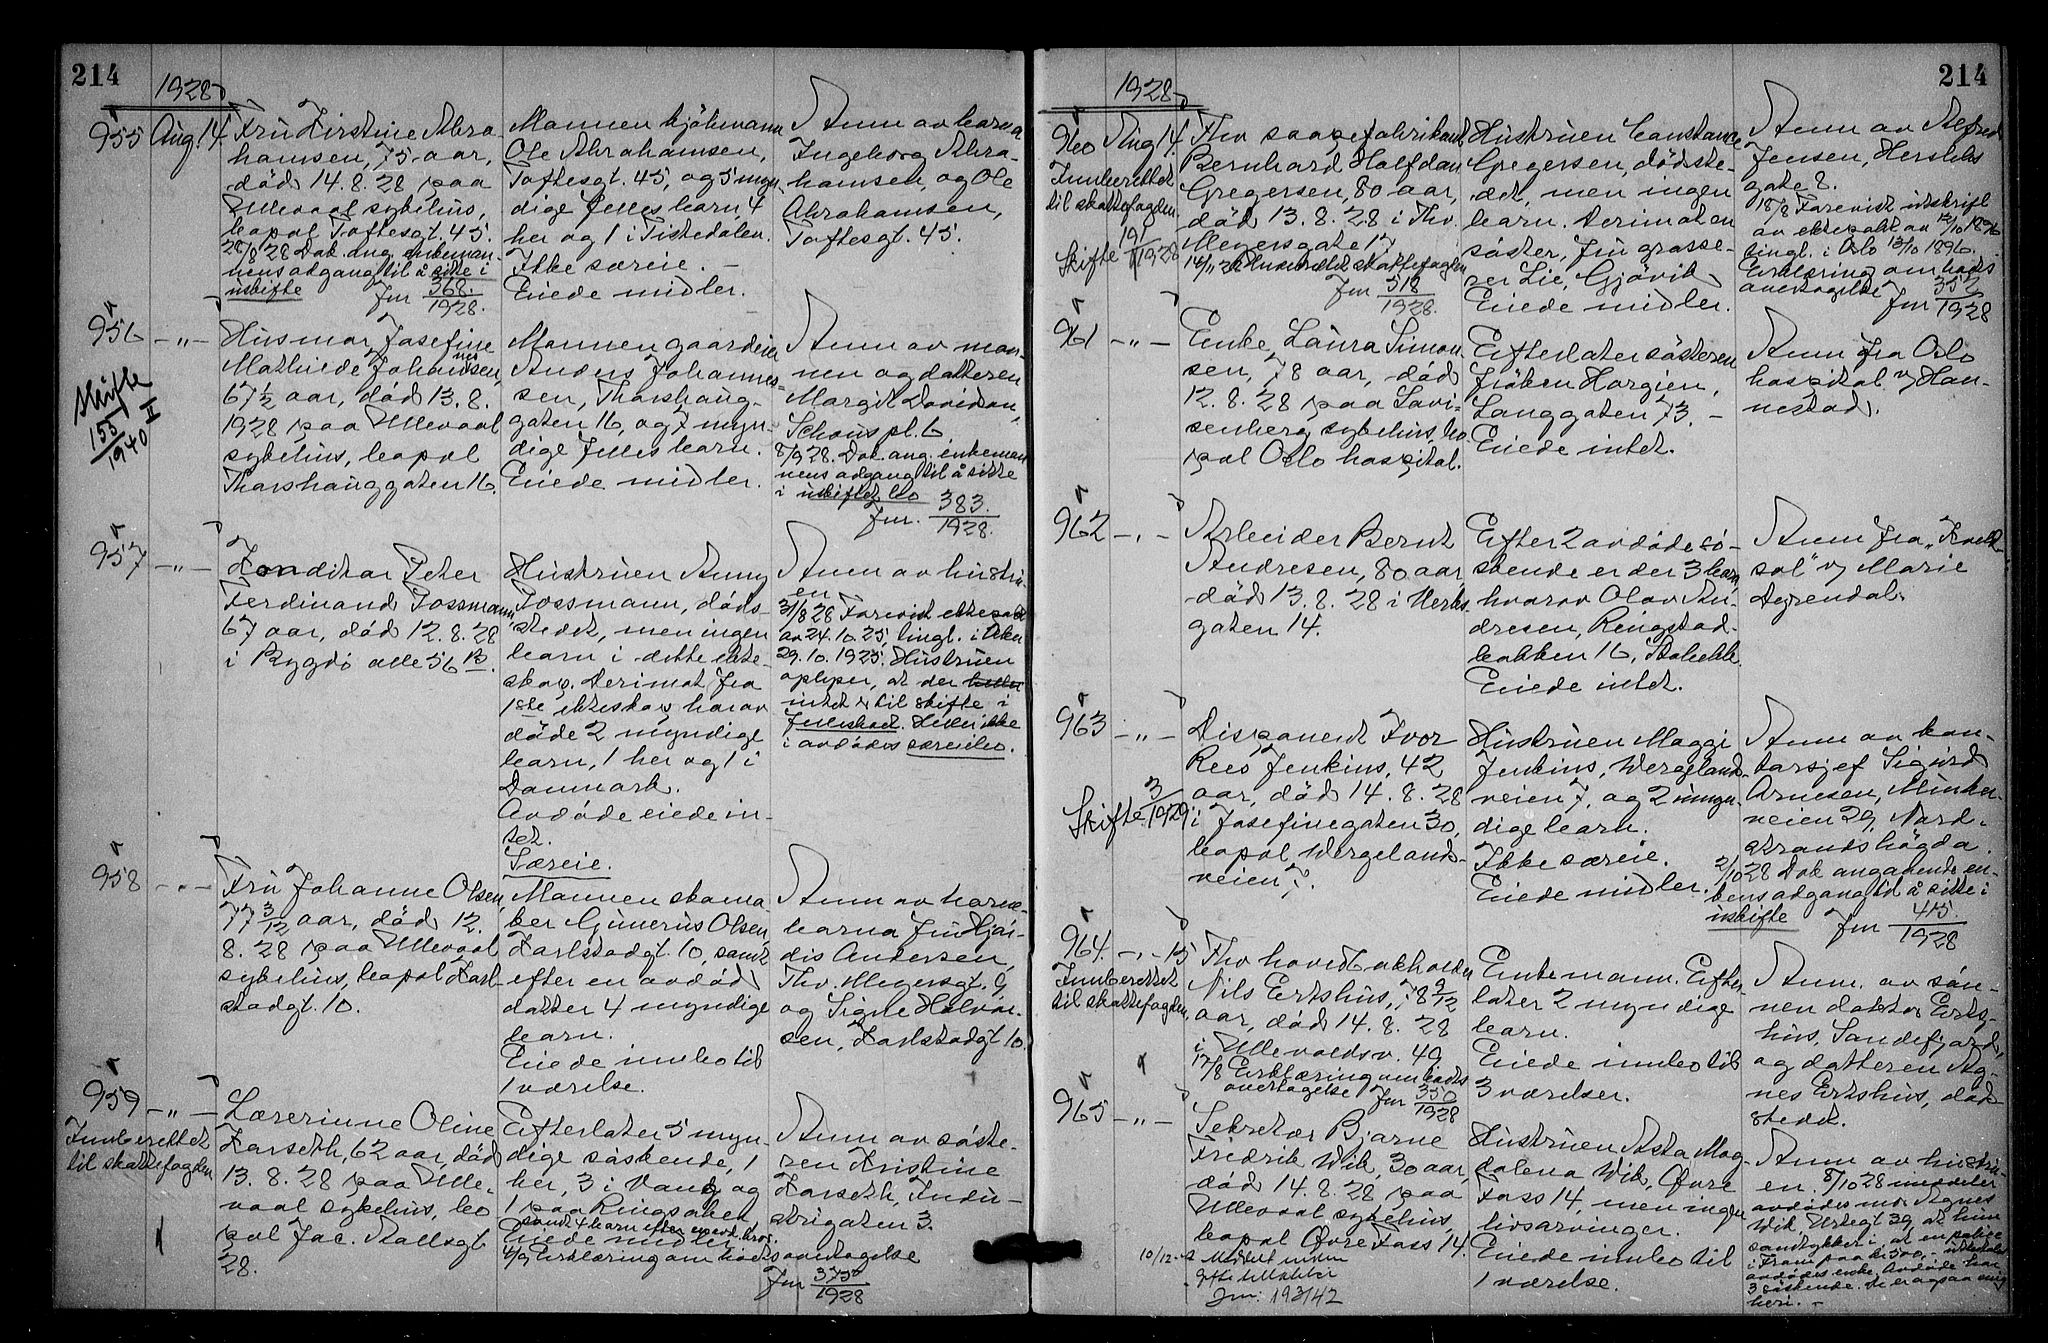 214
1928
955 Aug. 14.
Fru Kirstine Abra-
hamsen, 75 aar,
død 14.8.28 paa
Ullevaal sykehus,
bopæl Toftesgt. 45.
28/8 28 Dok. ang. enkeman-
nens adgang til å sitte i
uskifte Jnr 368./1928.
Mannen kjøbmann
Ole Abrahamsen,
Toftesgt. 45, og 5 myn-
dige fellesbarn, 4
her og 1 i Tistedalen.
Ikke særeie. –
Eiede midler.
Anm av barna
Ingeborg Abra-
hamsen, og Ole
Abrahamsen,
Toftesgt. 45.
956 – " –
Skifte
155/1940 II
Husmor Josefine
Mathilde Johannesen,
67 1/2 aar, død 13.8.
1928 paa Ullevaal
sykehus, bopæl
Thorshauggaten 16.
Mannen gaardeier
Anders Johannes-
sen, Thorshaug-
gaten 16, og 7 myn-
dige fellesbarn.
Eiede midler.
Anm av man-
nen og datteren
Margit Davidson,
Schous pl. 6
8/9 28. Dok. ang. enkeman
nens adgang til å sitte
i uskiftet bo
Jnr. 383./1928.
957 – " –
Konditor Peter
Ferdinand Tossmann,
67 aar, død 12.8.28
i Bygdø alle 56 B.
Hustruen Anny
Tossmann, døds-
stedet, men ingen
barn i dette ekte-
skap. Derimot fra
1ste ekteskap har av
døde 2 myndige
barn, 1 her og 1 i
Danmark.
Avdøde eiede in-
tet.
Særeie.
Anm av hustru-
en
31/8 28 Forevist ektepakt
av 24.10.25, tingl. i Aker
29.10.1925. Hustruen
oplyser, at der
intet er til skifte i
fellesboet. Heller ikke
i avdødes særeiebo.
958 – " –
Fru Johanne Olsen,
77 3/12 aar, død 12.
8.28 paa Ullevaal
sykehus, bopæl Karl-
stadgt. 10.
Mannen skoma-
ker Gunerius Olsen,
Karlstadgt. 10, samt
efter en avdød
datter 4 myndige
barn.
Eiede innbo til
1 værelse.
Anm av barne-
barna fru Hjør-
dis Andersen,
Thv. Meyersgt. 9
og Signe Halvor-
sen, Karlstadgt 10.
959 – " –
Innberettet
til skattefogden
Lærerinne Oline
Karseth, 62 aar, død
13.8.28 paa Ulle-
vaal sykehus, bo
pæl Jac. Aallsgt
28.
Efterlater 5 myn-
dige søskende, 1
her, 3 i Vang og
1 paa Ringsaker
samt 4 barn efter avdød bror.
Eiede midler.
4/9 Erklæring om boets overtagelse
Jnr 375/1928
Anm av søste-
ren Kristine
Karseth, Indu-
strigaten 3.
214
1928
960 Aug 14.
Innberettet
til skattefogden
Skifte 191/1928
Thv saapefabrikant
Bernhard Halfdan
Gregersen, 80 aar,
død 13.8.28 i Thv.
Meyersgate 17
Jnr 518/1928.
Hustruen Constance
Gregersen, dødsste-
det, men ingen
barn. Derimot en
søster, fru grosse-
rer Lie, Gjøvik
Eiede midler.
Anm av Alfred
Jensen, Herslebs
gate 8.
18/8 Forevist utskrift
av ektepakt av 12/10 1896
tingl. i Oslo 13/10 1896.
Erklæring om boets
overtagelse Jnr 352/1928
961 – " –
Enke Laura Simon-
sen, 78 aar, død
12.8.28 paa Lovi-
senberg sykehus, bo
pæl Oslo hospital.
Efterlater søsteren
frøken Horgien,
Langgaten 73. –
Eiede intet.
Anm fra Oslo
hospital v/ Han-
nestad.
962 – " –
Arbeider Bernt
Andresen, 80 aar
død 13.8.28 i Verks
gaten 14.
Efter 2 avdøde sø-
skende er der 3 barn,
hvorav Olav An-
dresen, Ringstad-
bakken 16, Stabekk.
Eiede intet.
Anm fra "Kvelds-
sol" v/ Marie
Dyrendal.
963 – " –
Skifte 3/1929
Disponent Ivor
Rees Jenkins, 42
aar, død 14.8.28
i Josefinegaten 30,
bopæl Wergelands-
veien 7.
Hustruen Maggi
Jenkins, Wergelands-
veien 7, og 2 umyn-
dige barn.
Ikke særeie.
Eiede midler.
Anm av kon-
torsjef Sigurd
Arnesen, Munker-
veien 29, Nord-
strandshøgda.
2/10 28 Dok angaaende en-
kens adgang til å sitte i
uskifte Jnr 415./1928
964. – " – 15
Innberettet
til skattefogden
Thv hovedbokholder
Nils Ertshus, 78 9/12
aar, død 14.8.28
i Ullevoldsv. 49
17/8 Erklæring om boets
overtagelse Jnr 350/1928
Enkemann. Efter-
later 2 myndige
barn.
Eiede innbo til
3 værelser.
Anm. av søn-
nen doktor Erts-
hus, Sandefjord,
og datteren Ag-
nes Ertshus, døds-
stedet.
965 – " –
Sekretær Bjarne
Fredrik Wik, 30 aar,
død 14.8.28 paa
Ullevaal sykehus,
bopæl Øvre Foss 14.
10/12-42 Meddelt enken
Jnr: 193/42
Hustruen Asta Mag-
dalena Wik, Øvre
Foss 14, men ingen
livsarvinger.
Eiede innbo til
1 værelse.
Anm av hustru-
en. 8/10 28 meddeler
avdødes mor Agnes
Wik, Urtegt 39, at hun
samtykker i, at en polise
i Fram paa kr. 500,- utbetales
avdødes enke. Avdøde har
3 søskende. De er ogsaa enig
heri. –